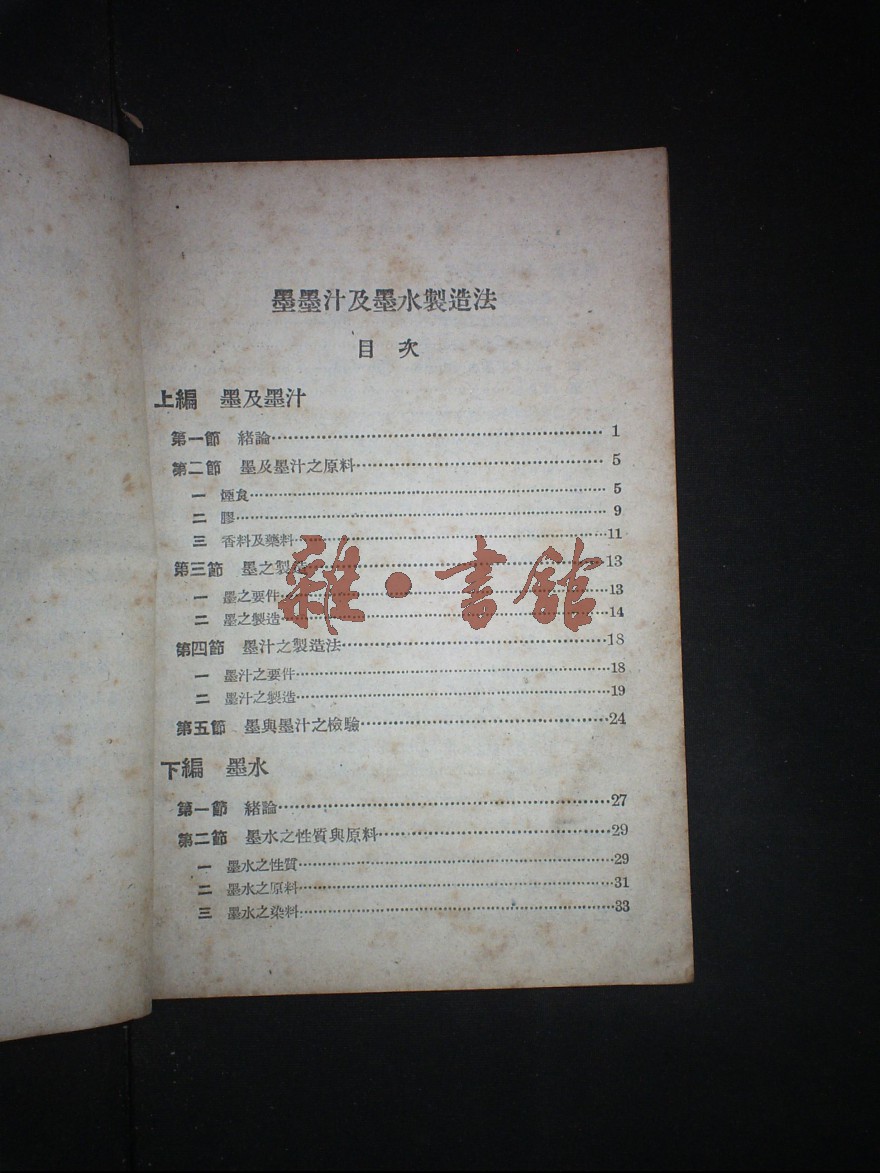 墨墨汁及墨水製造法
目次
上編 墨及墨汁
第一節 緒論 1
第二節 墨及墨汁之原料 5
一 煙炱 5
二 膠 9
三 香料及藥料 11
第三節 墨之製造 13
一 墨之要件 13
二 墨之製造 14
第四節 墨汁之製造法 18
一 墨汁之要件 18
二 墨汁之製造 19
第五節 墨與墨汁之檢驗 24
下編 墨水
第一節 緒論 27
第二節 墨水之性質與原料 29
一 墨水之性質 29
二 墨水之原料 31
三 墨水之染料 33
雜·書館